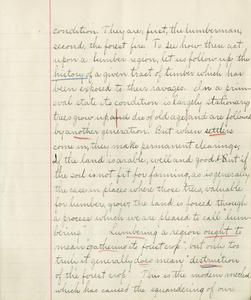 condition. They are, first, the lumberman,
second, the forest fire. To see how these act
upon a timber region, let us follow up the
history of a given tract of timber which has
been exposed to their ravages. In a prim-
eval state its condition is largely stationary
trees grow up and die of old age and are followed
by another generation. But when settlers
come in, they make permanent clearings;
If the land is arable, well and good. But if
the soil is not fit for farming, as is generally
the case in places where those trees, valuable
for lumber, grow, the land is forced through
a process which we are pleased to call "lum-
bering". Lumbering a region ought to
mean "gathering its forest crop", but only too
truly it generally does mean "destruction
of the forest crop". This is the modern method,
which has caused the squandering of our